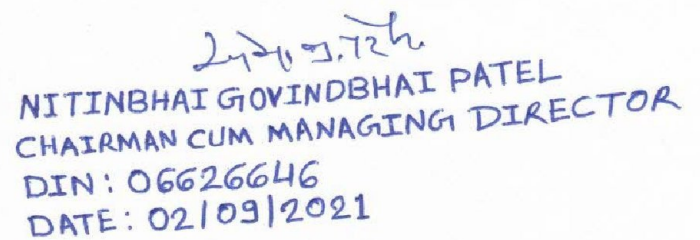 NITINBHAI GOVINDBHAI PATEL
CHAIRMAN CUM MANAGING DIRECTOR
DIN : 06626646
DATE : 02/09/2021